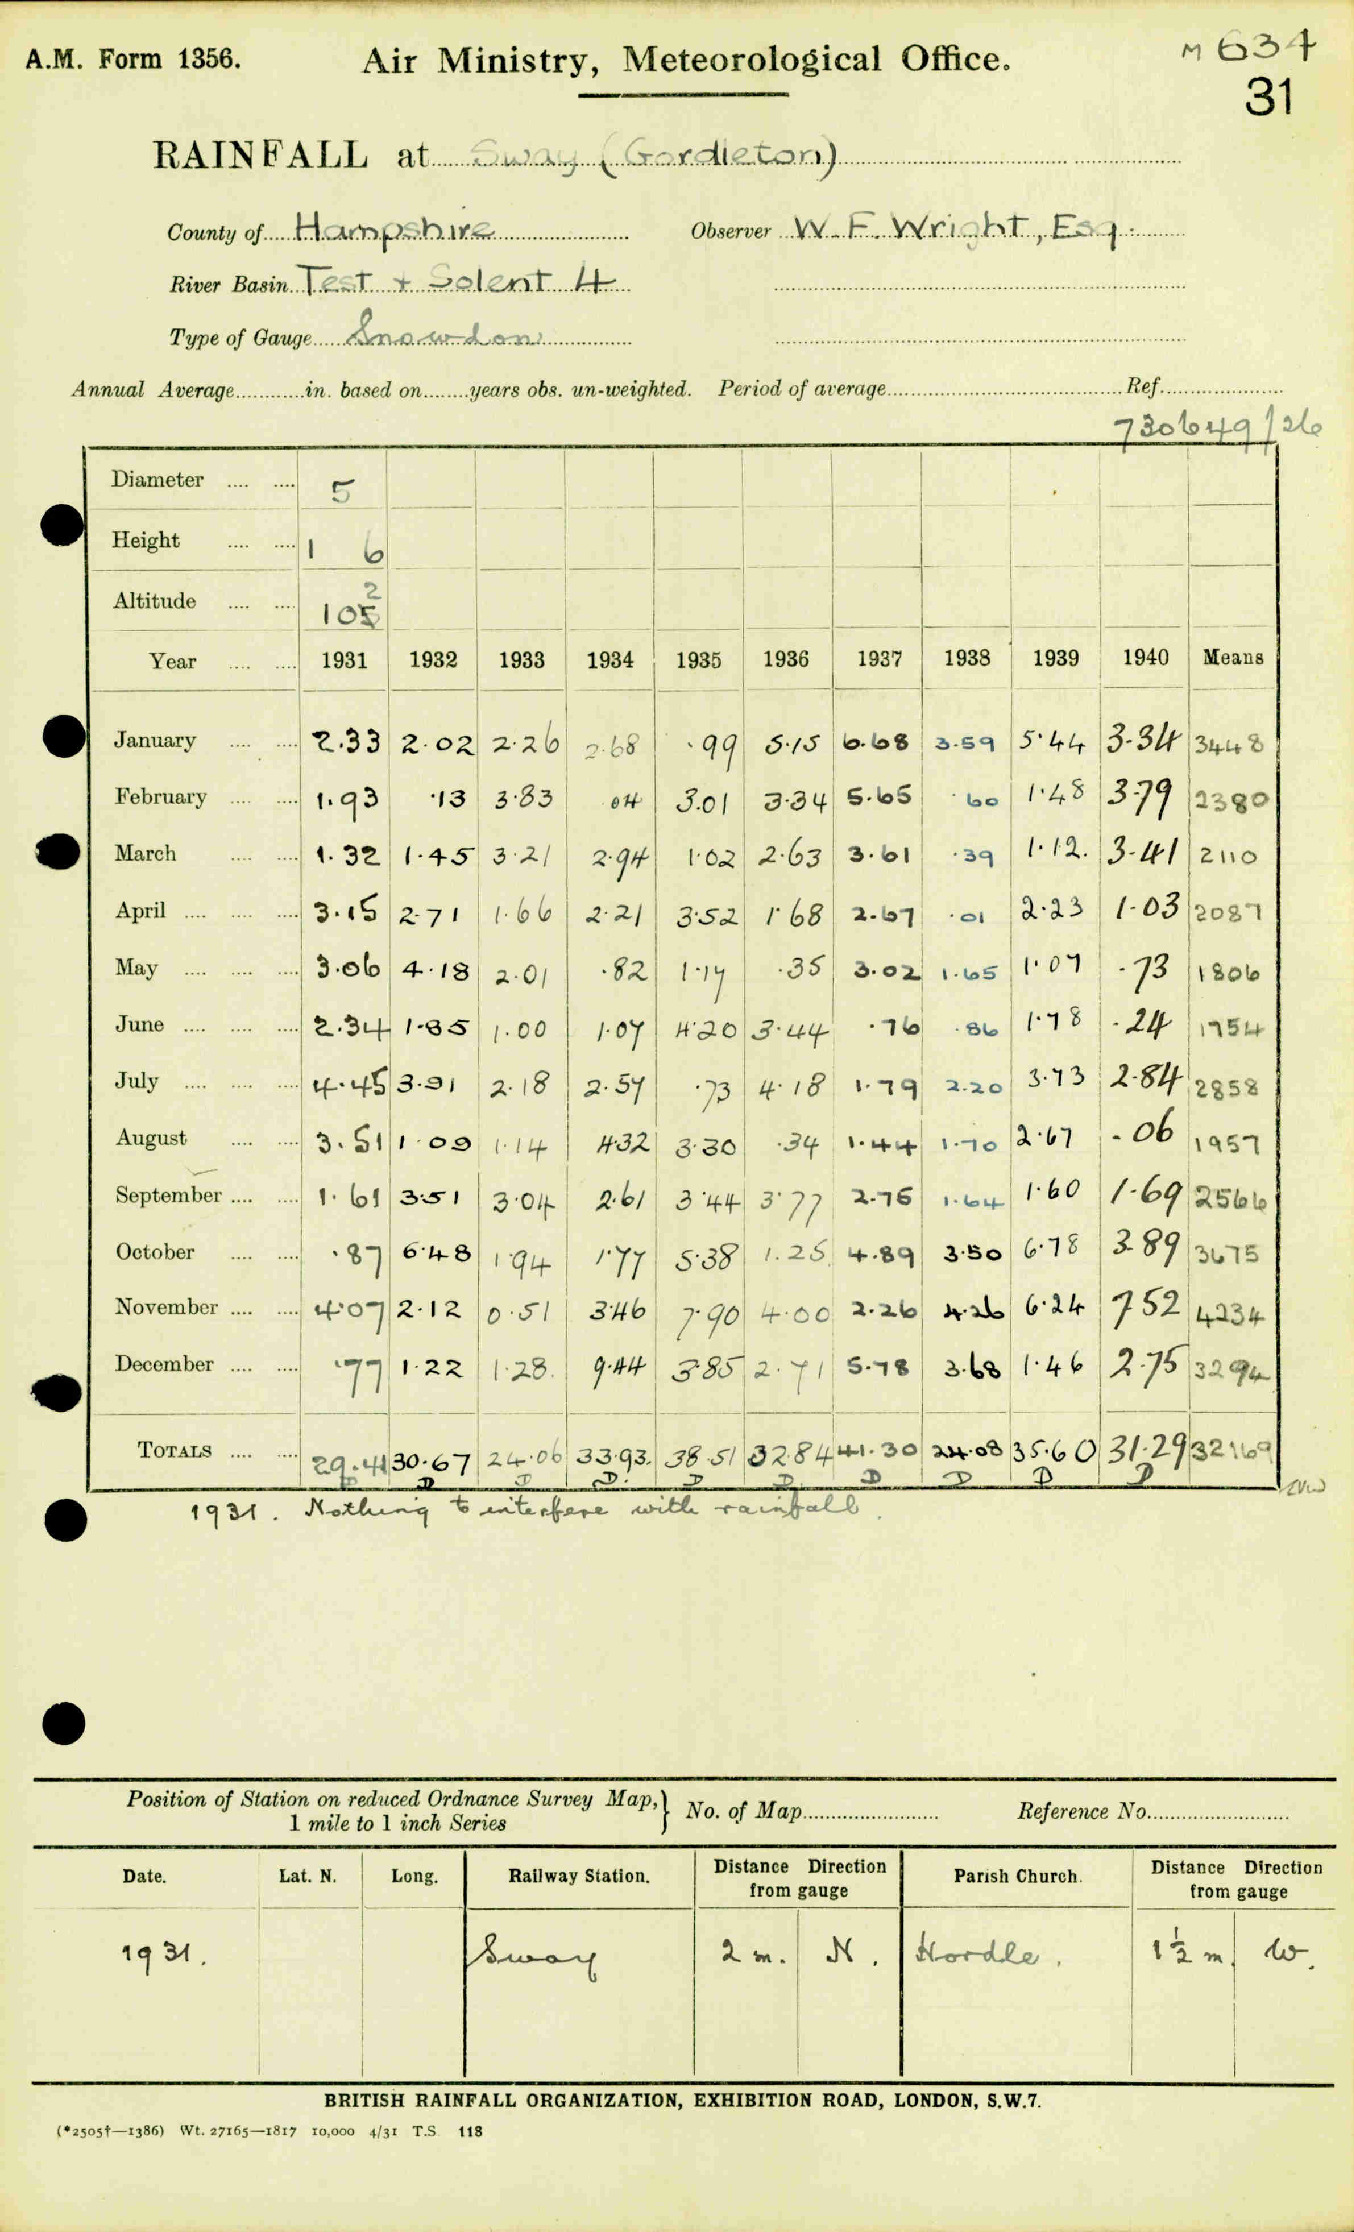 A.M. Form 1356. Air Ministry, Meteorological Office. M 634
31
RAINFALL at Sway (Gordleton)
County of Hampshire Observer W. F. Wright, Esq.
River Basin Test + Solent 4
Type of Gauge Snowdon
Annual Average in. based on years obs. un-weighted. Period of average Ref.
730649/26
Diameter 5
Height 1 6
Altitude 105 2
Year 1931 1932 1933 1934 1935 1936 1937 1938 1939 1940 Means
January 2.33 2.02 2.26 2.68 .99 5.15 6.68 3.59 5.44 3.34 3448
February 1.93 .13 3.83 .04 3.01 3.34 5.65 .60 1.48 3.79 2380
March 1.32 1.45 3.21 2.94 1.02 2.63 3.61 .39 1.12. 3.41 2110
April 3.15 2.71 1.66 2.21 3.52 1.68 2.67 .01 2.23 1.03 2087
May 3.06 4.18 2.01 .82 1.17 .35 3.02 1.65 1.07 .73 1806
June 2.34 1.85 1.00 1.07 4.20 3.44 .76 .86 1.78 .24 1754
July 4.45 3.91 2.18 2.57 .73 4.18 1.79 2.20 3.73 2.84 2858
August 3.51 1.09 1.14 4.32 3.30 .34 1.44 1.70 2.67 .06 1957
September 1.61 3.51 3.04 2.61 3.44 3.77 2.75 1.64 1.60 1.69 2566
October .87 6.48 1.94 1.77 5.38 1.25 4.89 3.50 6.78 3.89 3675
November 4.07 2.12 0.51 3.46 7.90 4.00 2.26 4.26 6.24 7.52 4234
December .77 1.22 1.28. 9.44 3.85 2.71 5.78 3.68 1.46 2.75 3294
TOTALS 29.41 30.67 24.06 33.93. 38.51 32.84 41.30 24.08 35.60 31.29 32169
D D D D. D D. D D D D
1931. Nothing to interfere with rainfall.
Position of Station on reduced Ordnance Survey Map, } No. of Map Reference No.
1 mile to 1 inch Series
Date. Lat. N. Long. Railway Station. Distance Direction from gauge Parish Church. Distance Direction from gauge
1931. Sway 2 m. N. Hordle. 1½ m. W.
BRITISH RAINFALL ORGANIZATION, EXHIBITION ROAD, LONDON, S.W.7.
(*2505†—1386) Wt. 27165—1817 10,000 4/31 T.S. 118